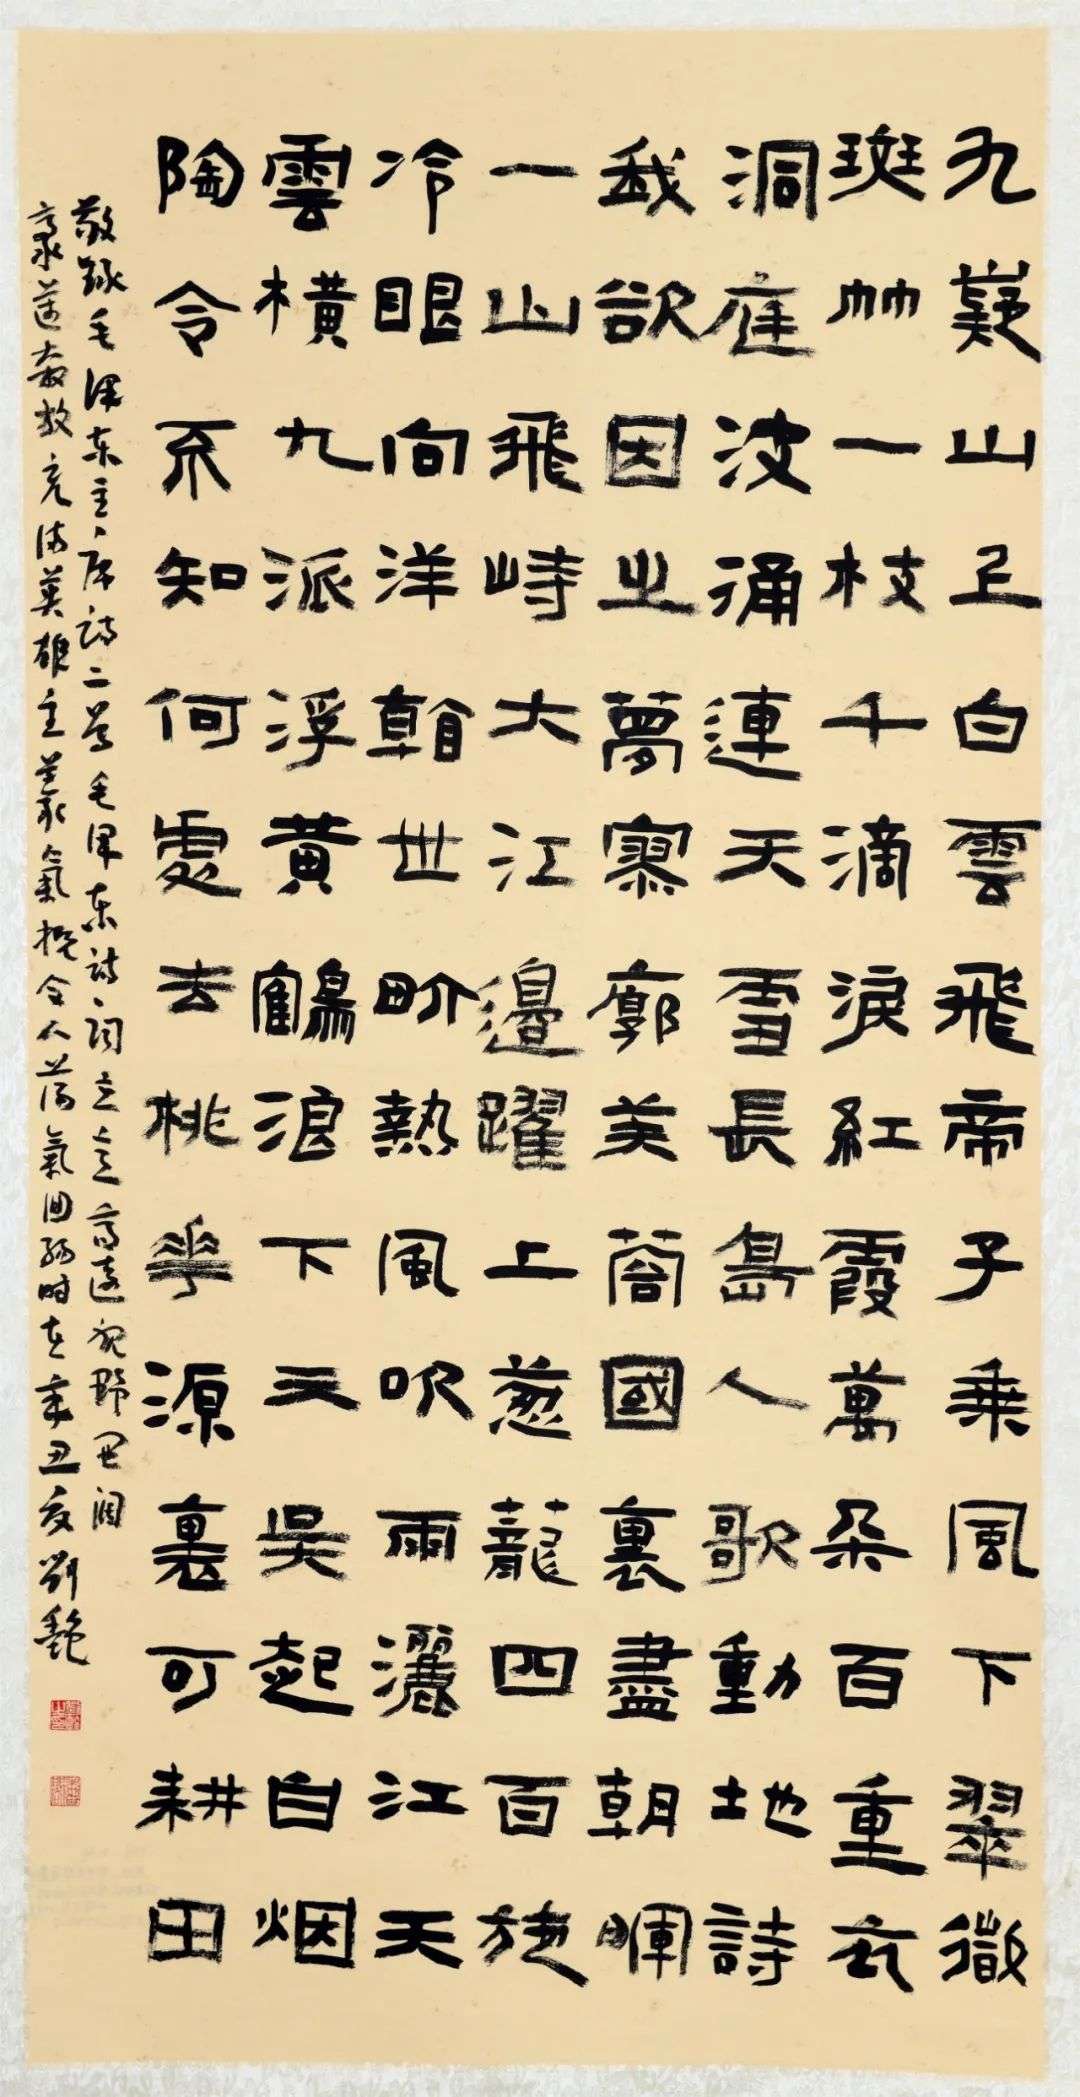 九嶷山上白雲飛帝子乘風下翠微
斑竹一枝千滴淚紅霞萬朵百重衣
洞庭波涌連天雪長島人歌動地詩
我欲因之夢寥廓芙蓉國裏盡朝暉
一山飛峙大江邊躍上葱蘢四百旋
冷眼向洋看世畍熱風吹雨灑江天
雲橫九派浮黃鶴浪下三吳起白烟
陶令不知何處去桃花源裏可耕田
敬録毛泽东主席詩二首毛泽东詩詞立意高遠視野開闊
豪邁奔放充滿英雄主義氣概令人蕩氣回腸時在辛丑夏劉艷